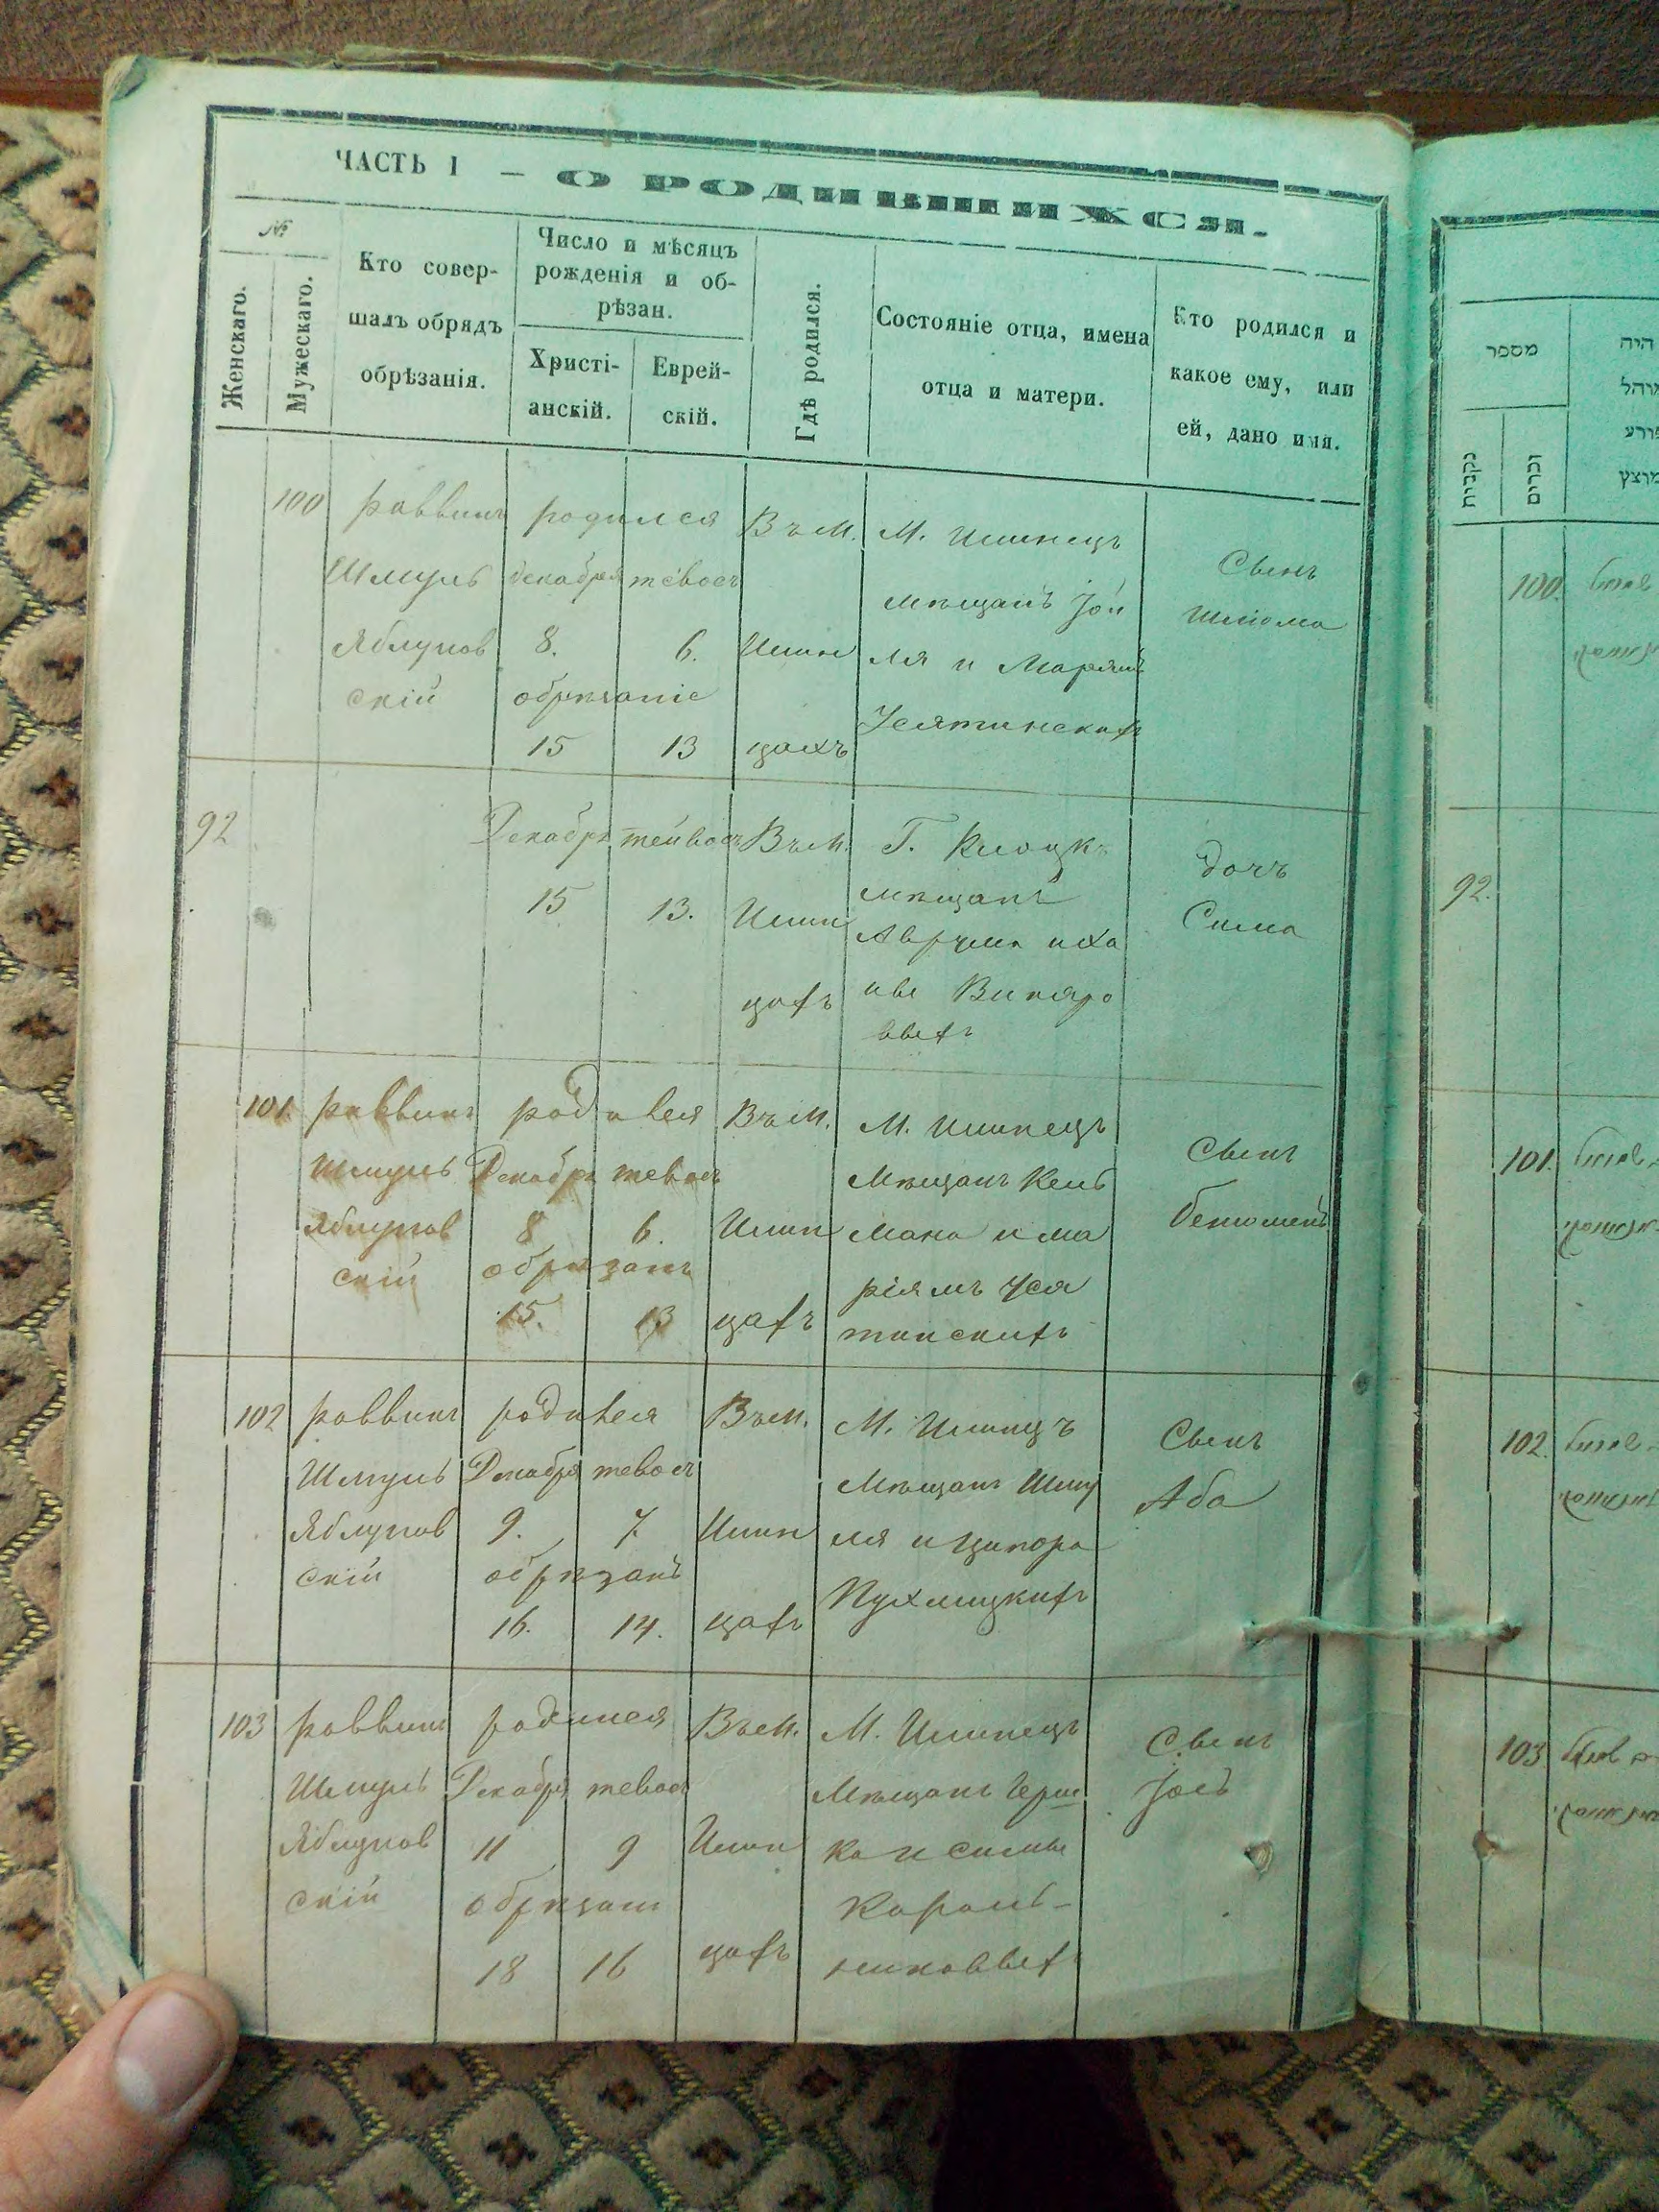 ЧАСТЬ I – О РОДИВШИХСЯ.
№
Женскаго.
Мужескаго.
Кто совер-
шалъ обрядъ
обрѣзанія.
Число и мѣсяцъ
рожденія и об-
рѣзан.
Христі-
анскій.
Еврей-
скій.
Гдѣ родился.
Состояніе отца, имена
отца и матери.
Кто родился и
какое ему, или
ей, дано имя.
100
раввинъ
Шмуль
Яблунов
скій
родился
декабря тевосъ
8. 6.
обрѣзаніе
15 13
Въ м.
Ишн
цахъ
М. Ишнецъ
мѣщанъ Іой
ля и Марьямъ
Усятинскихъ
Сынъ
Шліома
92
Декабрь тейвосъ
15 13.
Въ м.
Ишн
цахъ
Г. Клоцкъ
мѣщанъ
Аврума и Ха
ны Виняро
выхъ
дочь
Сима
101.
раввинъ
Шмуль
Яблунов
скій
родился
Декабрь тевосъ
8 6.
обрѣзанъ
15. 13
Въ м.
Ишн
цахъ
М. Ишнецъ
Мѣщанъ Кель
мана и ма
ріямъ Уся
тинскихъ
Сынъ
Бенюменъ
102
раввинъ
Шмуль
Яблунов
скій
родился
Декабря тевосъ
9. 7.
обрѣзанъ
16. 14.
Въ м.
Ишн
цахъ
М. Ишнцъ
Мѣщанъ Шму
ля и Ципора
Пухлицкихъ
Сынъ
Аба
103
раввинъ
Шмуль
Яблунов
скій
родился
Декабря тевосъ
11 9
обрѣзанъ
18 16
Въ м.
Ишн
цахъ
М. Ишнецъ
Мѣщанъ Герш
ка и Симы
Король-
никовыхъ
Сынъ
Іоель
מספר
נקבות
זכרים
היה
100.
92.
101.
102.
103